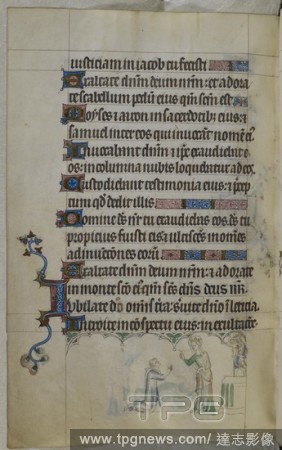 iusticiam in iacob tu fecisti
Exaltate dnm deum nrm: et adora
te scabellum pedu eius qm scm est
Moyses et aaron in sacerdotib; eius: et
samuel inter eos qui invocant nomen ei'
Invocabant dnm et ipse exaudiebat e
os: in columna nubis loquebatur ad eos
Custodiebant testimonia eius: et prep
tum qd dedit illis
Domine ds nr tu exaudiebas eos: ds tu
propicius fuisti eis: et ulciscens in omnes
adinvenciones eorum
Exaltate dnm deum nrm: et adorate
in monte sco ei' qm scs dns deus nr
Iubilate deo omis terra: servite dno i leticia
Introite in conspectu eius: in exultacione
TPG
www.tpgnews.com/達志影像